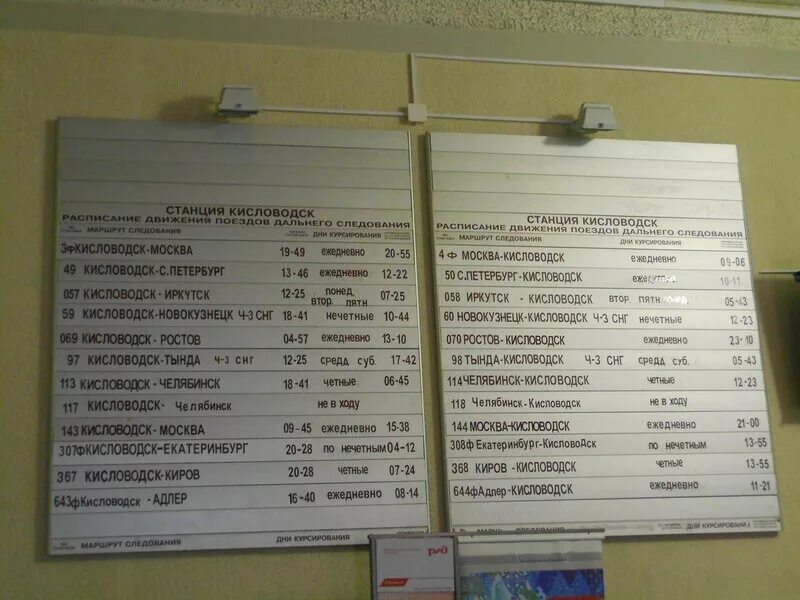 СТАНЦИЯ КИСЛОВОДСК
РАСПИСАНИЕ ДВИЖЕНИЯ ПОЕЗДОВ ДАЛЬНЕГО СЛЕДОВАНИЯ
МАРШРУТ СЛЕДОВАНИЯ ДНИ КУРСИРОВАНИЯ
3ФКИСЛОВОДСК-МОСКВА 19-49 ежедневно 20-55
49 КИСЛОВОДСК-С.ПЕТЕРБУРГ 13-46 ежедневно 12-22
057 КИСЛОВОДСК- ИРКУТСК 12-25 понед втор. пятн 07-25
59 КИСЛОВОДСК-НОВОКУЗНЕЦК Ч-З СНГ 18-41 нечетные 10-44
069 КИСЛОВОДСК- РОСТОВ 04-57 ежедневно 13-10
97 КИСЛОВОДСК-ТЫНДА Ч-З СНГ 12-25 среда суб. 17-42
113 КИСЛОВОДСК - ЧЕЛЯБИНСК 18-41 четные 06-45
117 КИСЛОВОДСК- Челябинск не в ходу
143 КИСЛОВОДСК- МОСКВА 09-45 ежедневно 15-38
307ФКИСЛОВОДСК-ЕКАТЕРИНБУРГ 20-28 по нечетным 04-12
367 КИСЛОВОДСК-КИРОВ 20-28 четные 07-24
643фКисловодск -АДЛЕР 16-40 ежедневно 08-14
МАРШРУТ СЛЕДОВАНИЯ ДНИ КУРСИРОВАНИЯ
СТАНЦИЯ КИСЛОВОДСК
РАСПИСАНИЕ ДВИЖЕНИЯ ПОЕЗДОВ ДАЛЬНЕГО СЛЕДОВАНИЯ
МАРШРУТ СЛЕДОВАНИЯ ДНИ КУРСИРОВАНИЯ
4 Ф МОСКВА-КИСЛОВОДСК ежедневно 09-06
50 С.ПЕТЕРБУРГ-КИСЛОВОДСК ежедневно 10-11
058 ИРКУТСК - КИСЛОВОДСК втор пятн. понед 05-43
60 НОВОКУЗНЕЦК-КИСЛОВОДСК Ч-З СНГ нечетные 12-23
070 РОСТОВ-КИСЛОВОДСК ежедневно 23-10
98 ТЫНДА-КИСЛОВОДСК Ч-З СНГ среда суб. 05-43
114 ЧЕЛЯБИНСК-КИСЛОВОДСК четные 12-23
118 Челябинск-Кисловодск не в ходу
144 МОСКВА-КИСЛОВОДСК ежедневно 21-00
308ф Екатеринбург-Кисловодск по нечетным 13-55
368 КИРОВ -КИСЛОВОДСК четные 13-55
644фАдлер-КИСЛОВОДСК ежедневно 11-21
МАРШ. СЛЕДОВАНИЯ ДНИ КУРСИРОВАНИ